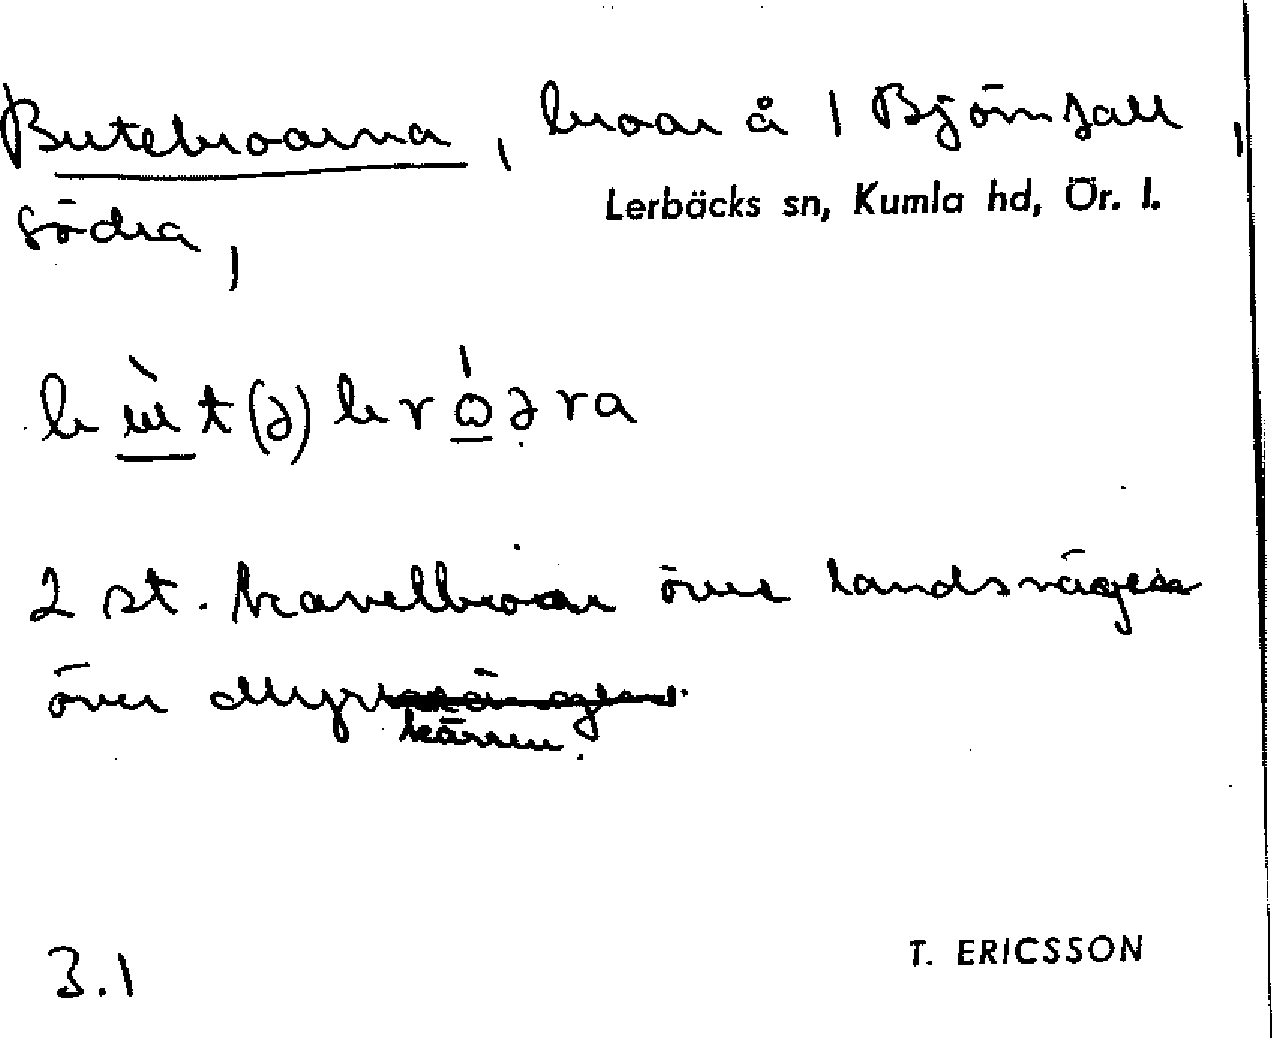 Butebroarna, broar å 1 Björnfall,
Lerbäcks sn, Kumla hd, Ör. l.
södra,
b ɯ̀t(ə)brόəra
2 st. kavelbroar över landsvägen
över Myrkärren.
3.1
T. ERICSSON